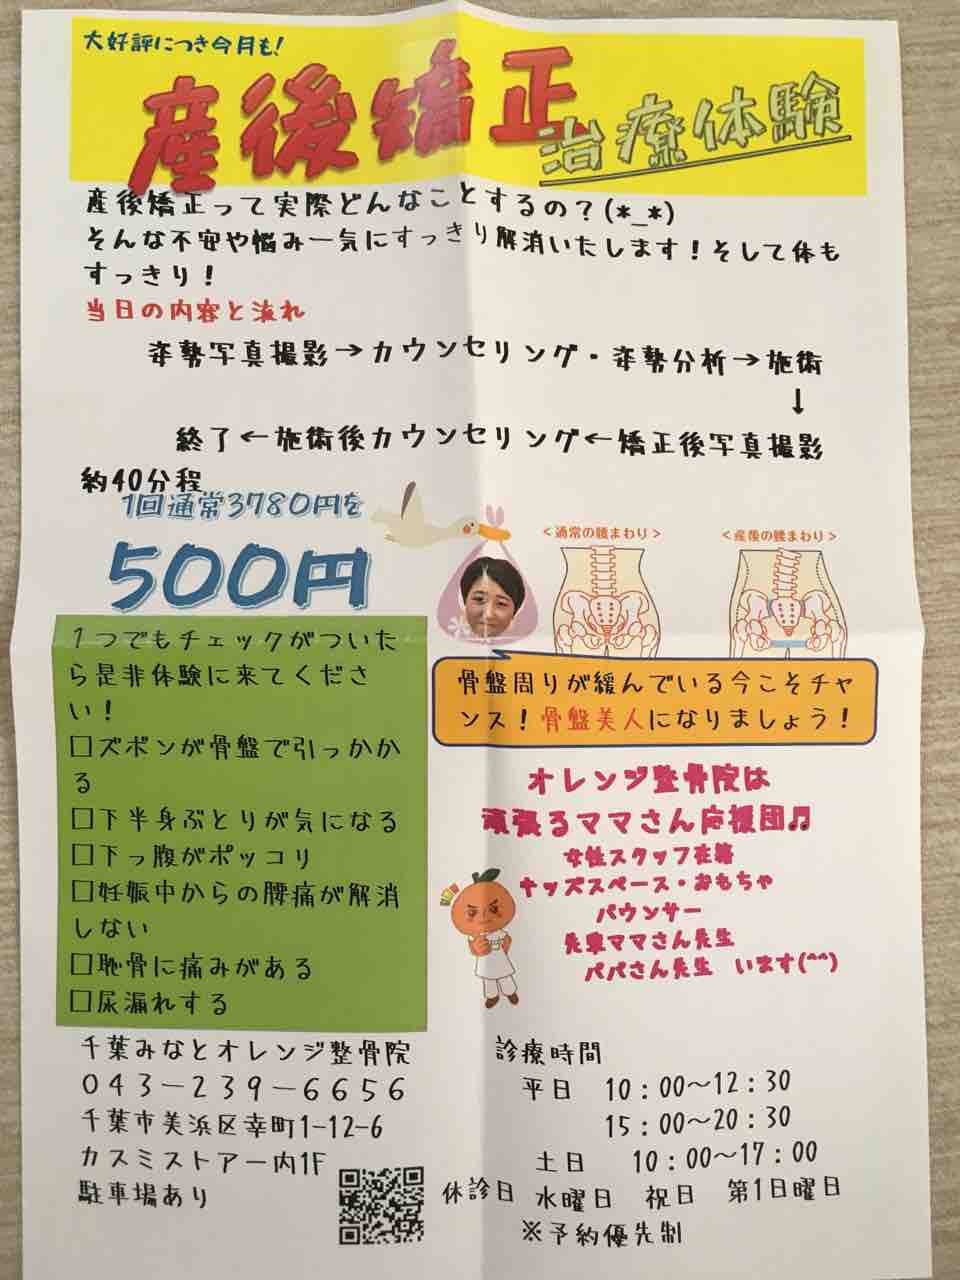 大好評につき今月も！
産後矯正治療体験
産後矯正って実際どんなことするの？(*_*)
そんな不安や悩み一気にすっきり解消いたします！そして体も
すっきり！
当日の内容と流れ
姿勢写真撮影→カウンセリング・姿勢分析→施術
↓
終了←施術後カウンセリング←矯正後写真撮影
約40分程
1回通常3780円を
500円
＜通常の腰まわり＞
＜産後の腰まわり＞
1つでもチェックがついた
ら是非体験に来てくださ
い！
□ズボンが骨盤で引っかか
る
□下半身ぶとりが気になる
□下っ腹がポッコリ
□妊娠中からの腰痛が解消
しない
□恥骨に痛みがある
□尿漏れする
骨盤周りが緩んでいる今こそチャ
ンス！骨盤美人になりましょう！
オレンジ整骨院は
頑張るママさん応援団♫
女性スタッフ在籍
キッズスペース・おもちゃ
バウンサー
先輩ママさん先生
パパさん先生　います(^^)
千葉みなとオレンジ整骨院
043－239－6656
千葉市美浜区幸町1-12-6
カスミストアー内1F
駐車場あり
診療時間
平日　10：00～12：30
15：00～20：30
土日　10：00～17：00
休診日　水曜日　祝日　第1日曜日
※予約優先制